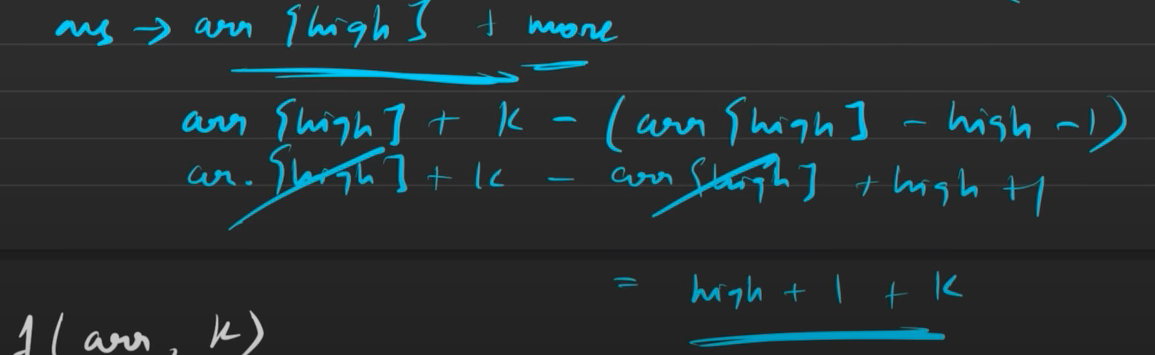 ans → arr [high] + more
arr [high] + k - (arr [high] - high - 1)
arr [high] + k - arr [high] + high + 1
= high + 1 + k
f(arr, k)